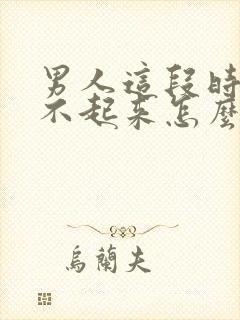 男人這段時
不起來怎麼
烏蘭夫